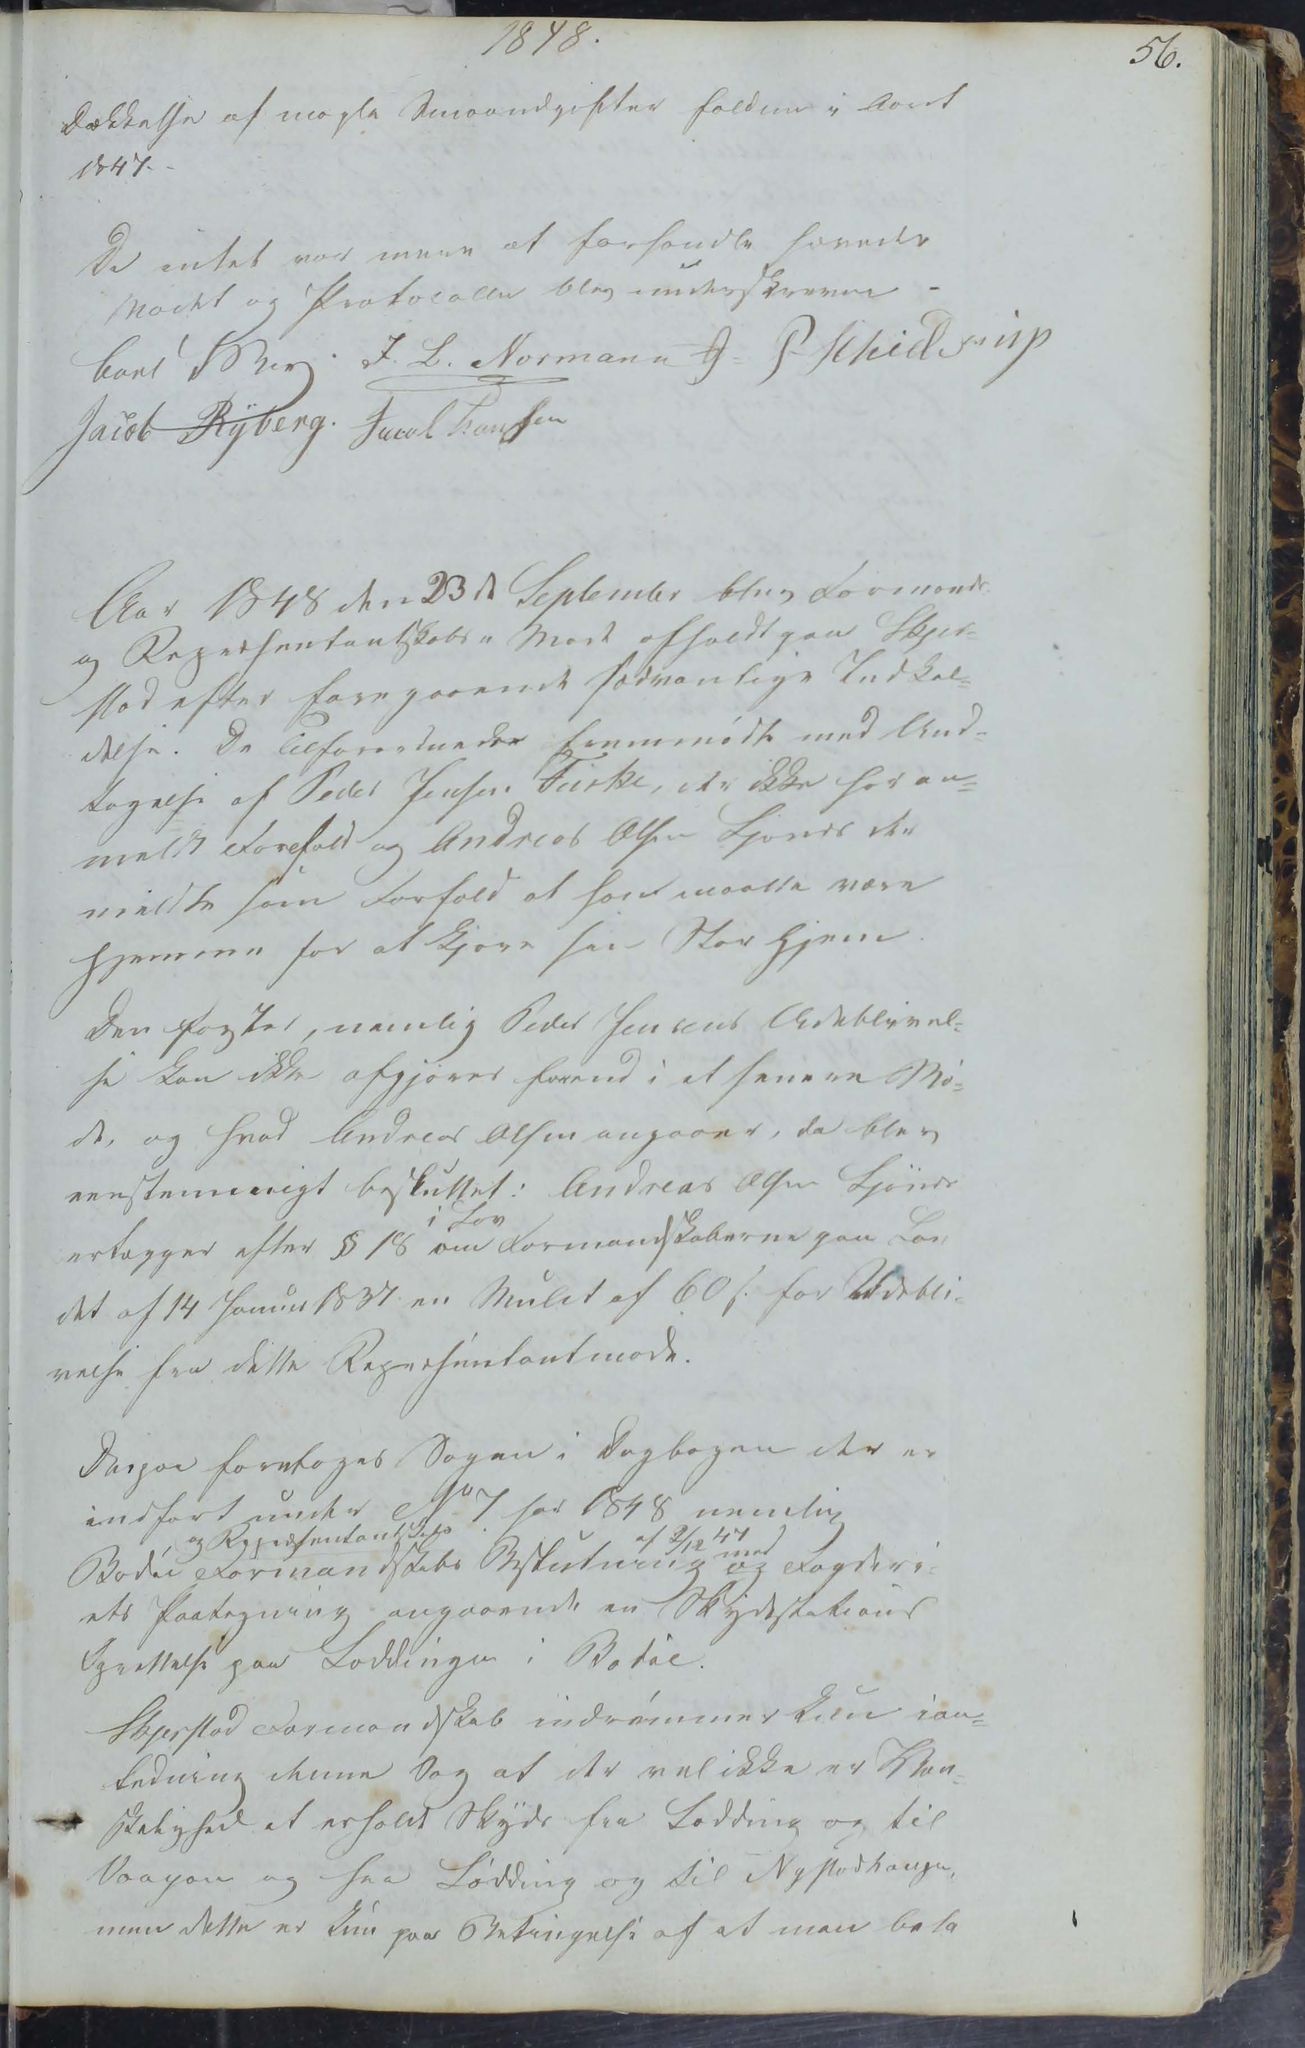 1848.
56.
Dækkelse af nogle Smaaudgifter faldne i Aaret
1847.-
Da intet var mere at forhandle hævedes
Mødet og Protocollen blev underskreven -
Carl Berg. J. L. Normann J. P. Schjelderup
Jacob Ryberg. Jacob Hansen
Aar 1848 den 23de September blev Formands
og Repræsentantskabs Møde afholdt paa Skjer-
stad efter foregaaende sædvanlige Indkal-
delse. De Tilforordnede fremmødte med Und-
tagelse af Peder Jensen Fuske, der ikke har an-
meldt Forefald og Andreas Olsen Ljønes der
meldte som Forfald at han maatte være
hjemme for at kjøre sin Skov hjem
Den første, nemlig Peder Jensens Udeblivel-
se kan ikke afgjøres førend i et senere Mø-
de, og hvad Andreas Olsen angaaer, da blev
eenstemmigt besluttet: Andreas Olsen Ljønes
i Lov
erlægger efter § 18 om Formandskaberne paa Lan
det af 14 Januar 1837 en Mulct af 60 s. for Udebli-
velse fra dette Repræsentantmøde.
Derpaa foretoges Sagen i Dagbogen der er
indført under No 7 for 1848 nemlig
og Repræsentantskabs af 9/12 47
Bodøe Formandskabs Beslutning og med Fogderi-
ets Paategning angaaende en Skydsstations
Oprettelse paa Loddingen i Bodøe.
Skjerstad Formandskab indrømmer kun i an-
ledning denne Sag at der vel ikke er Van-
skelighed at erholde Skyds fra Lødding og til
Vaagan og fra Lødding og til Nystadhaugen,
men dette er kun paa Betingelse af at man beta